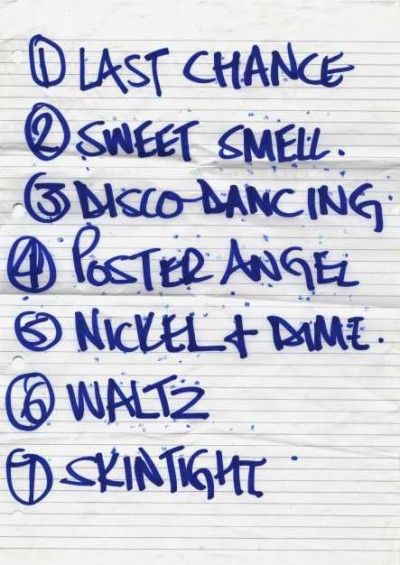 ① LAST CHANCE
② SWEET SMELL.
③ DISCO DANCING.
④ POSTER ANGEL
⑤ NICKEL + DIME.
⑥ WALTZ
⑦ SKINTIGHT